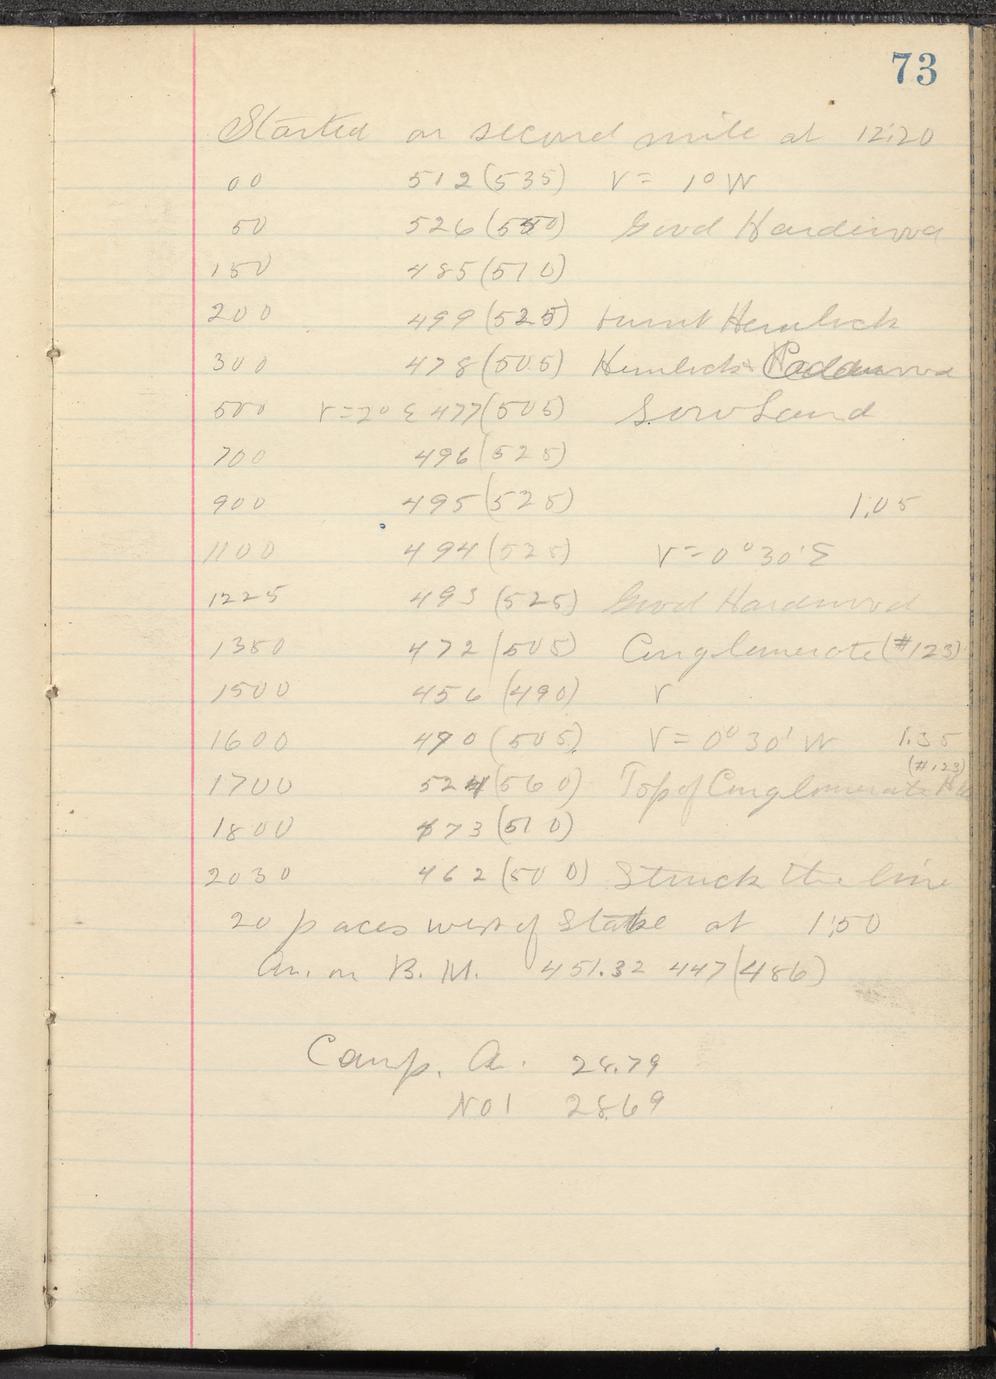 73
Started on second mile at 12:20
00 512 (535) V = 1° W
50 526 (550) Good Hardwood
150 485 (510)
200 499 (525) burnt Hemlock
300 478 (505) Hemlock
500 V = 2° E 477 (505) Low Land
700 496 (525)
900 495 (525) 1.05
1100 494 (525) V = 0° 30' E
1225 493 (525) Good Hardwood
1350 472 (505) Conglomerate (#123)
1500 456 (490) V
1600 470 (505) V = 0° 30' W 1.35
(#123)
1700 524 (560) Top of Conglomerate
1800 473 (510)
2030 462 (500) Struck the line
20 paces west of Stake at 1:50
An. on B. M. 451.32 447 (486)
Camp. An. 28.79
No 1 28.69